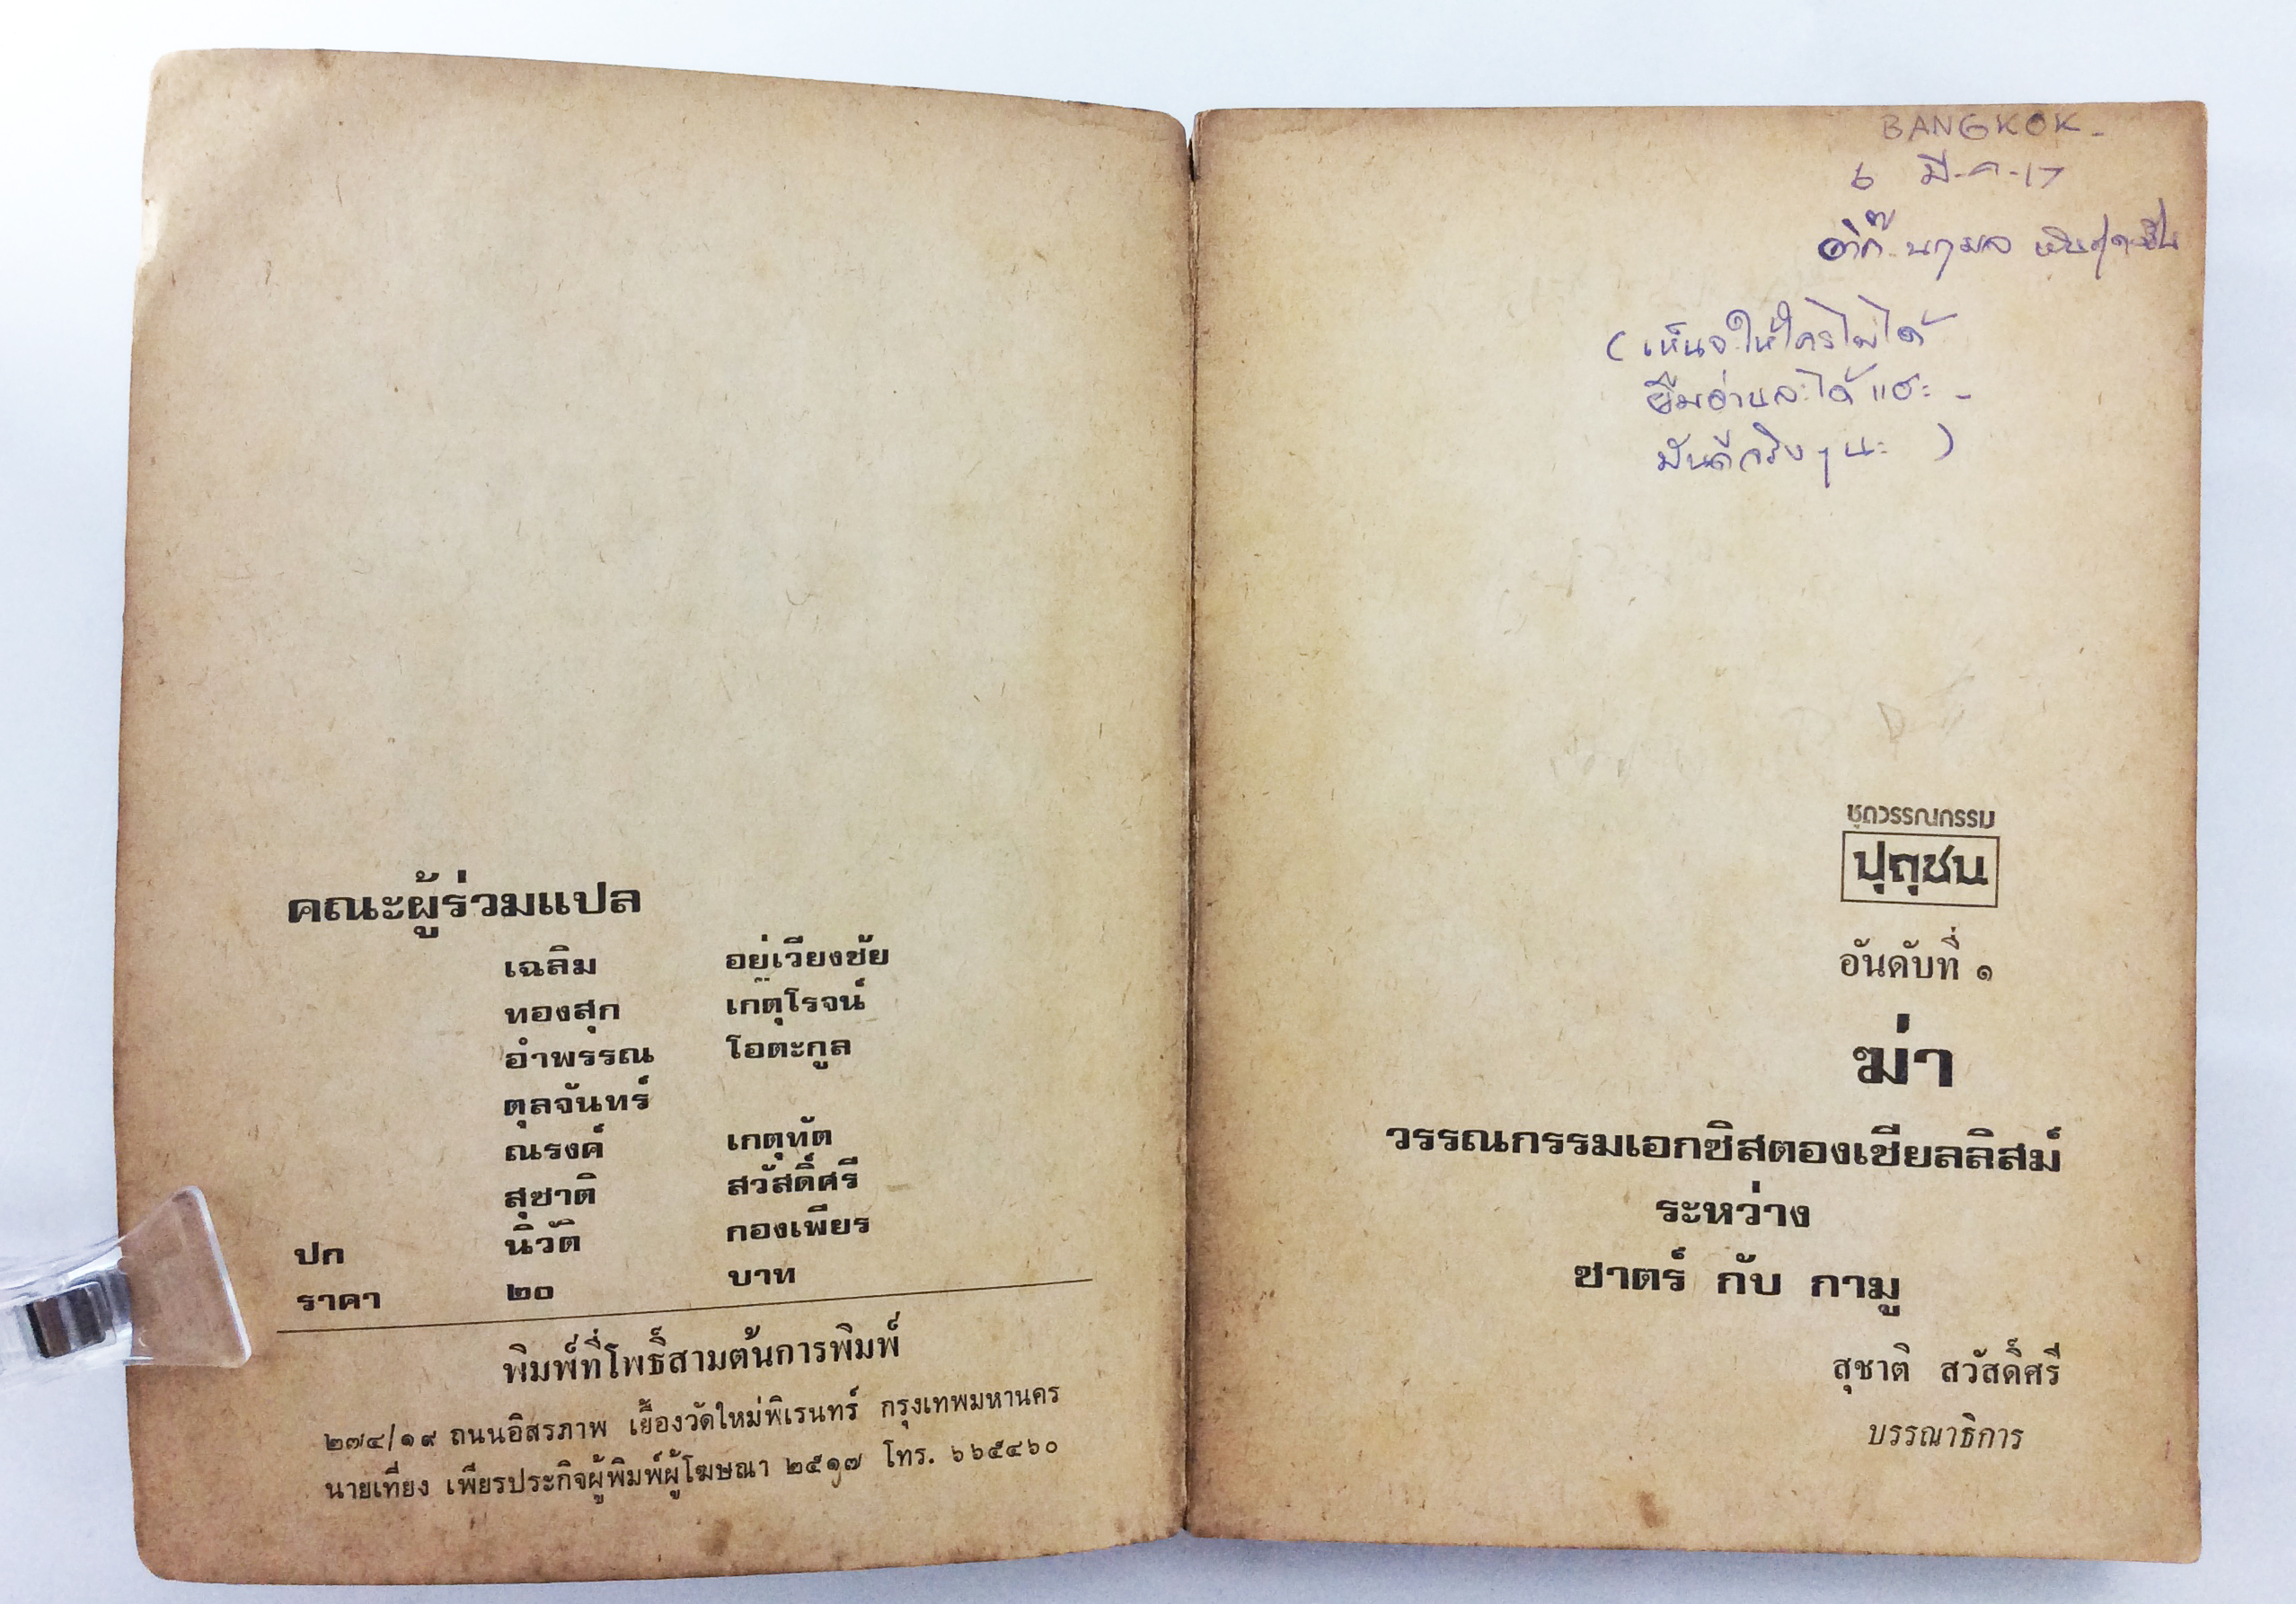 คณะผู้ร่วมแปล
เฉลิม อยู่เวียงชัย
ทองสุก เกตุโรจน์
อำพรรณ โอตะกูล
ตุลจันทร์
ณรงค์ เกตุทัต
สุชาติ สวัสดิ์ศรี
ปก นิวัติ กองเพียร
ราคา ๒๐ บาท
พิมพ์ที่โพธิ์สามต้นการพิมพ์
๒๗๔/๑๙ ถนนอิสรภาพ เยื้องวัดใหม่พิเรนทร์ กรุงเทพมหานคร
นายเที่ยง เพียรประกิจผู้พิมพ์ผู้โฆษณา ๒๕๑๗ โทร. ๖๖๕๔๖๐
BANGKOK -
6 มี.ค.17
นฤมล
(เห็นจะให้ใครไม่ได้
ยืมอ่านละได้แฮะ -
มันดีจริงๆ นะ)
ชุดวรรณกรรม
ปุถุชน
อันดับที่ ๑
ฆ่า
วรรณกรรมเอกซิสตองเชียลลิสม์
ระหว่าง
ซาตร์ กับ กามู
สุชาติ สวัสดิ์ศรี
บรรณาธิการ